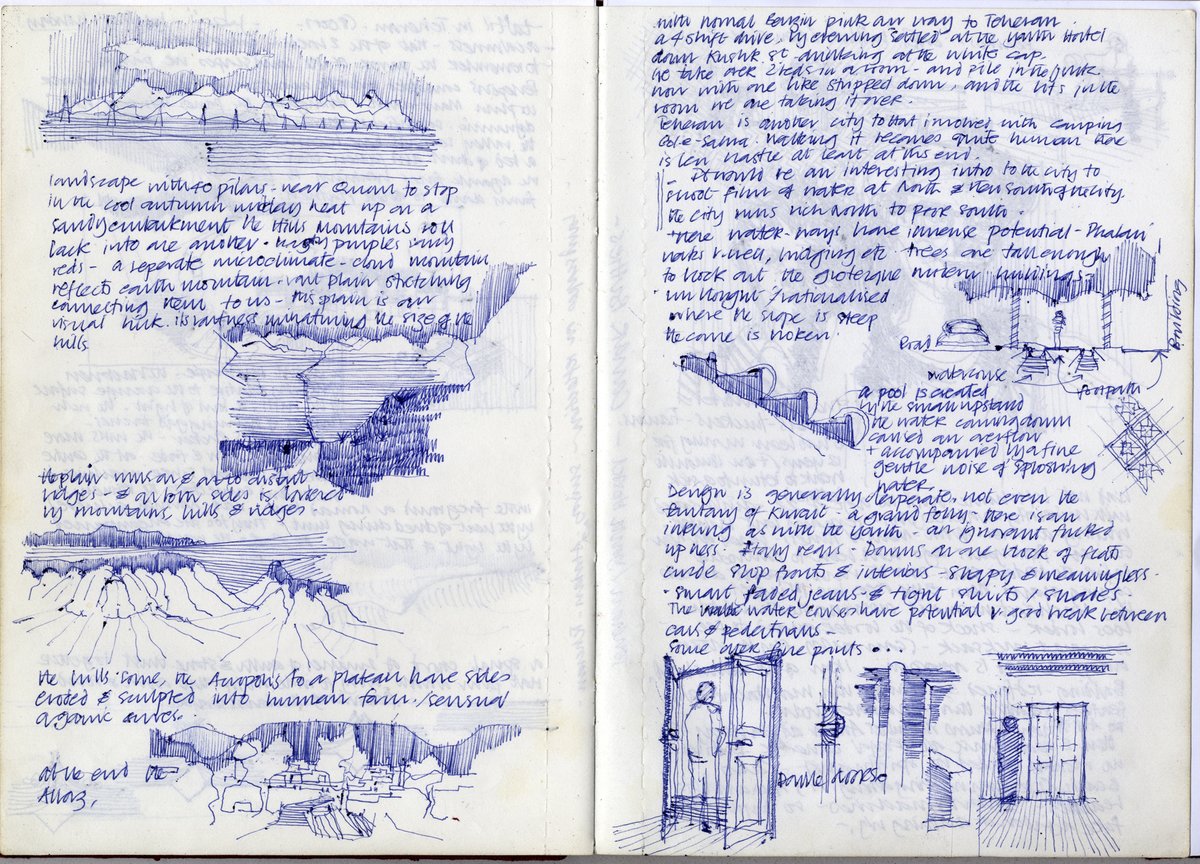 landscape with 40 pilans - near Quam to stop
in the cool autumn midday heat up on a
sandy embankment the Hills Mountains roll
back into one another - hazy purples sandy
reds - a seperate microclimate - cloud mountain
reflects earth mountain - vast plain stretching
connecting them to us - this plain is our
visual link. its vastness the size of the
hills.
the plain runs on & on to distant
ridges - & on both sides is layered
by mountains, hills & ridges
the hills Dome, the Acropolis to a plateau have sides
eroded & sculpted into human form / sensual
organic curves.
at the end the
with normal pink air way to Teheran
a 4 shift drive, by evening settled at the Hotel
down Kushk st drinking at the white cap.
we take over 2 beds in a room - and pile in the junk.
now with one bike stripped down, and the bits in the
room we are taking it over.
Teheran is another city to that involved with camping
Gol-e-Sahra. Walking it becomes quite human there
is less hassle at least at this end.
- It would be an interesting intro to the city to
shoot film of water at North & then South of the city.
the city runs rich North to poor South.
there water-ways have immense potential -
works v. well, bridging etc trees are tall enough
to block out the grotesque modern buildings.
un thought / rationalised
where the slope is steep
the course is broken.
Road
Building
watercourse
footpath
a pool is created
by the small upstand
the water coming down
caused an overflow
+ accompanied by a fine
gentle noise of sploshing
water.
Design is generally desperate, not even the
fantasy of Kuwait - a grand folly - there is an
inkling as with the - an ignorant fucked
up ness. Italy reigns - Domus on one block of flats
crude shop fronts & interiors - shapy & meaningless.
- smart faded jeans & tight shirts / shades.
The water courses have potential v. good break between
cars & pedestrians -
Some over fine points...
Double doors